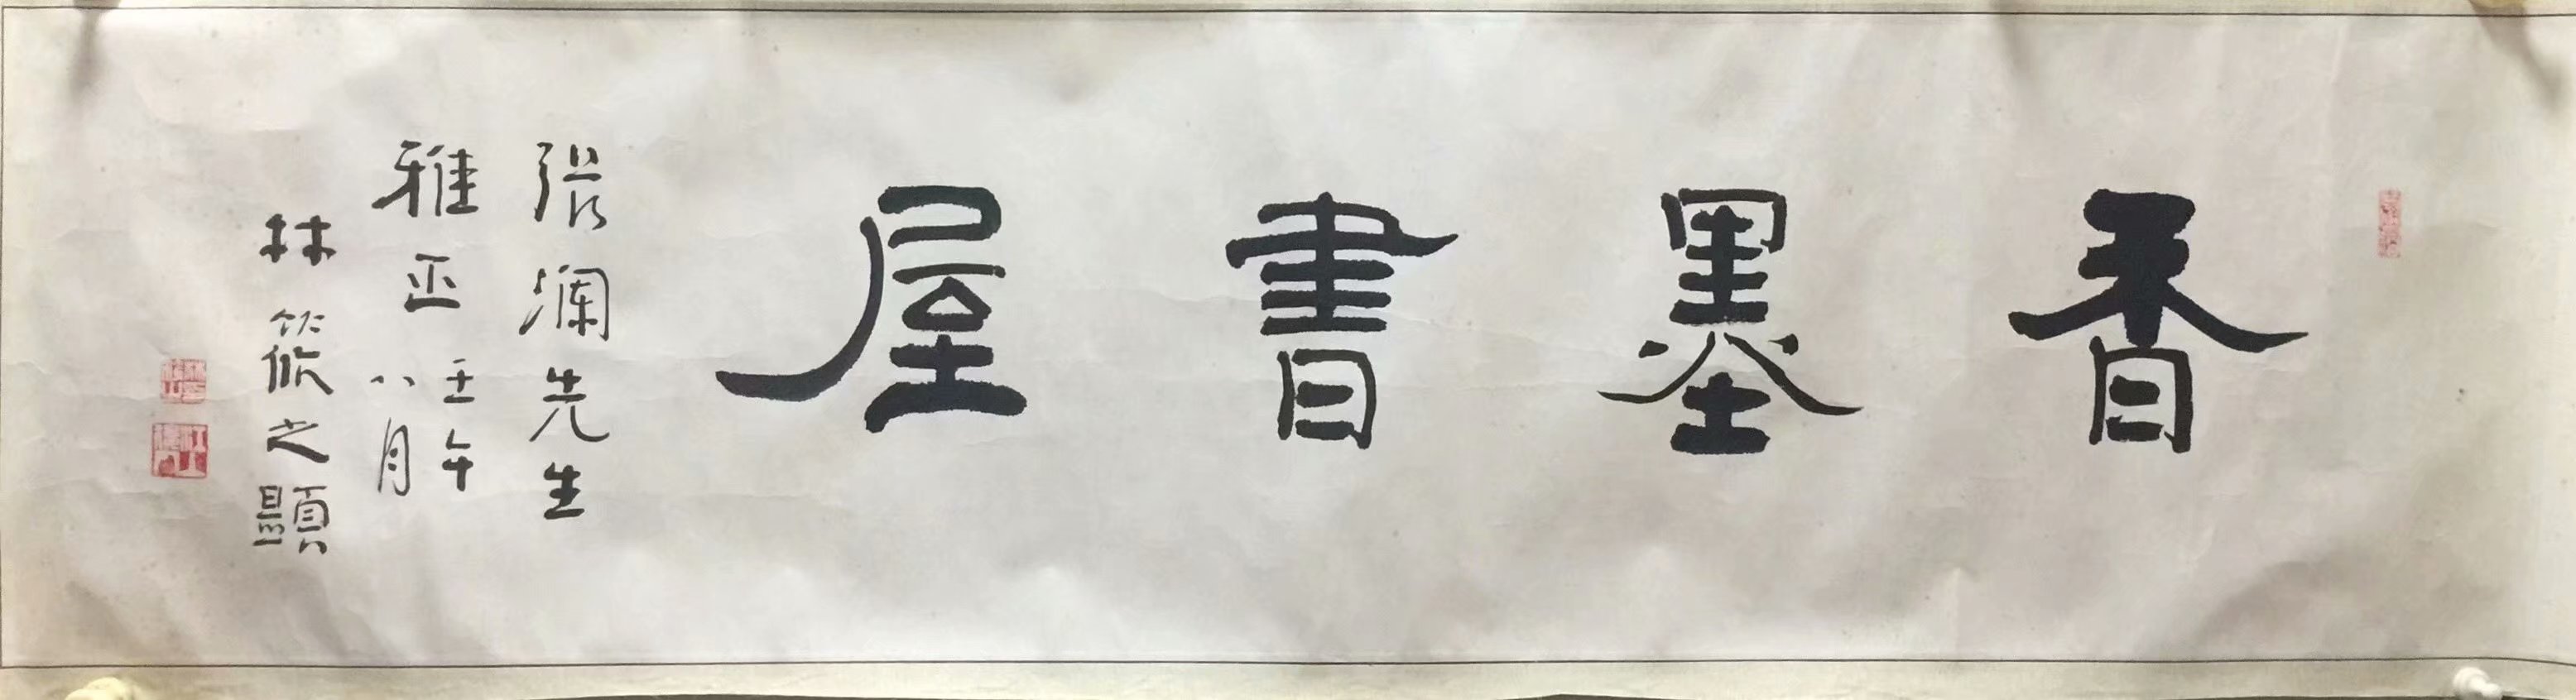 香墨書屋
張瀾先生
雅正
壬午
八月
林筱之題